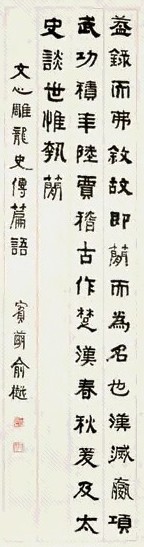 葢錄而弗敘故即蕑而為名也漢滅嬴項
武功積年陸賈稽古作楚漢春秋爰及太
史談世惟執蕑
文心雕龍史傳篇語 賓萌俞樾